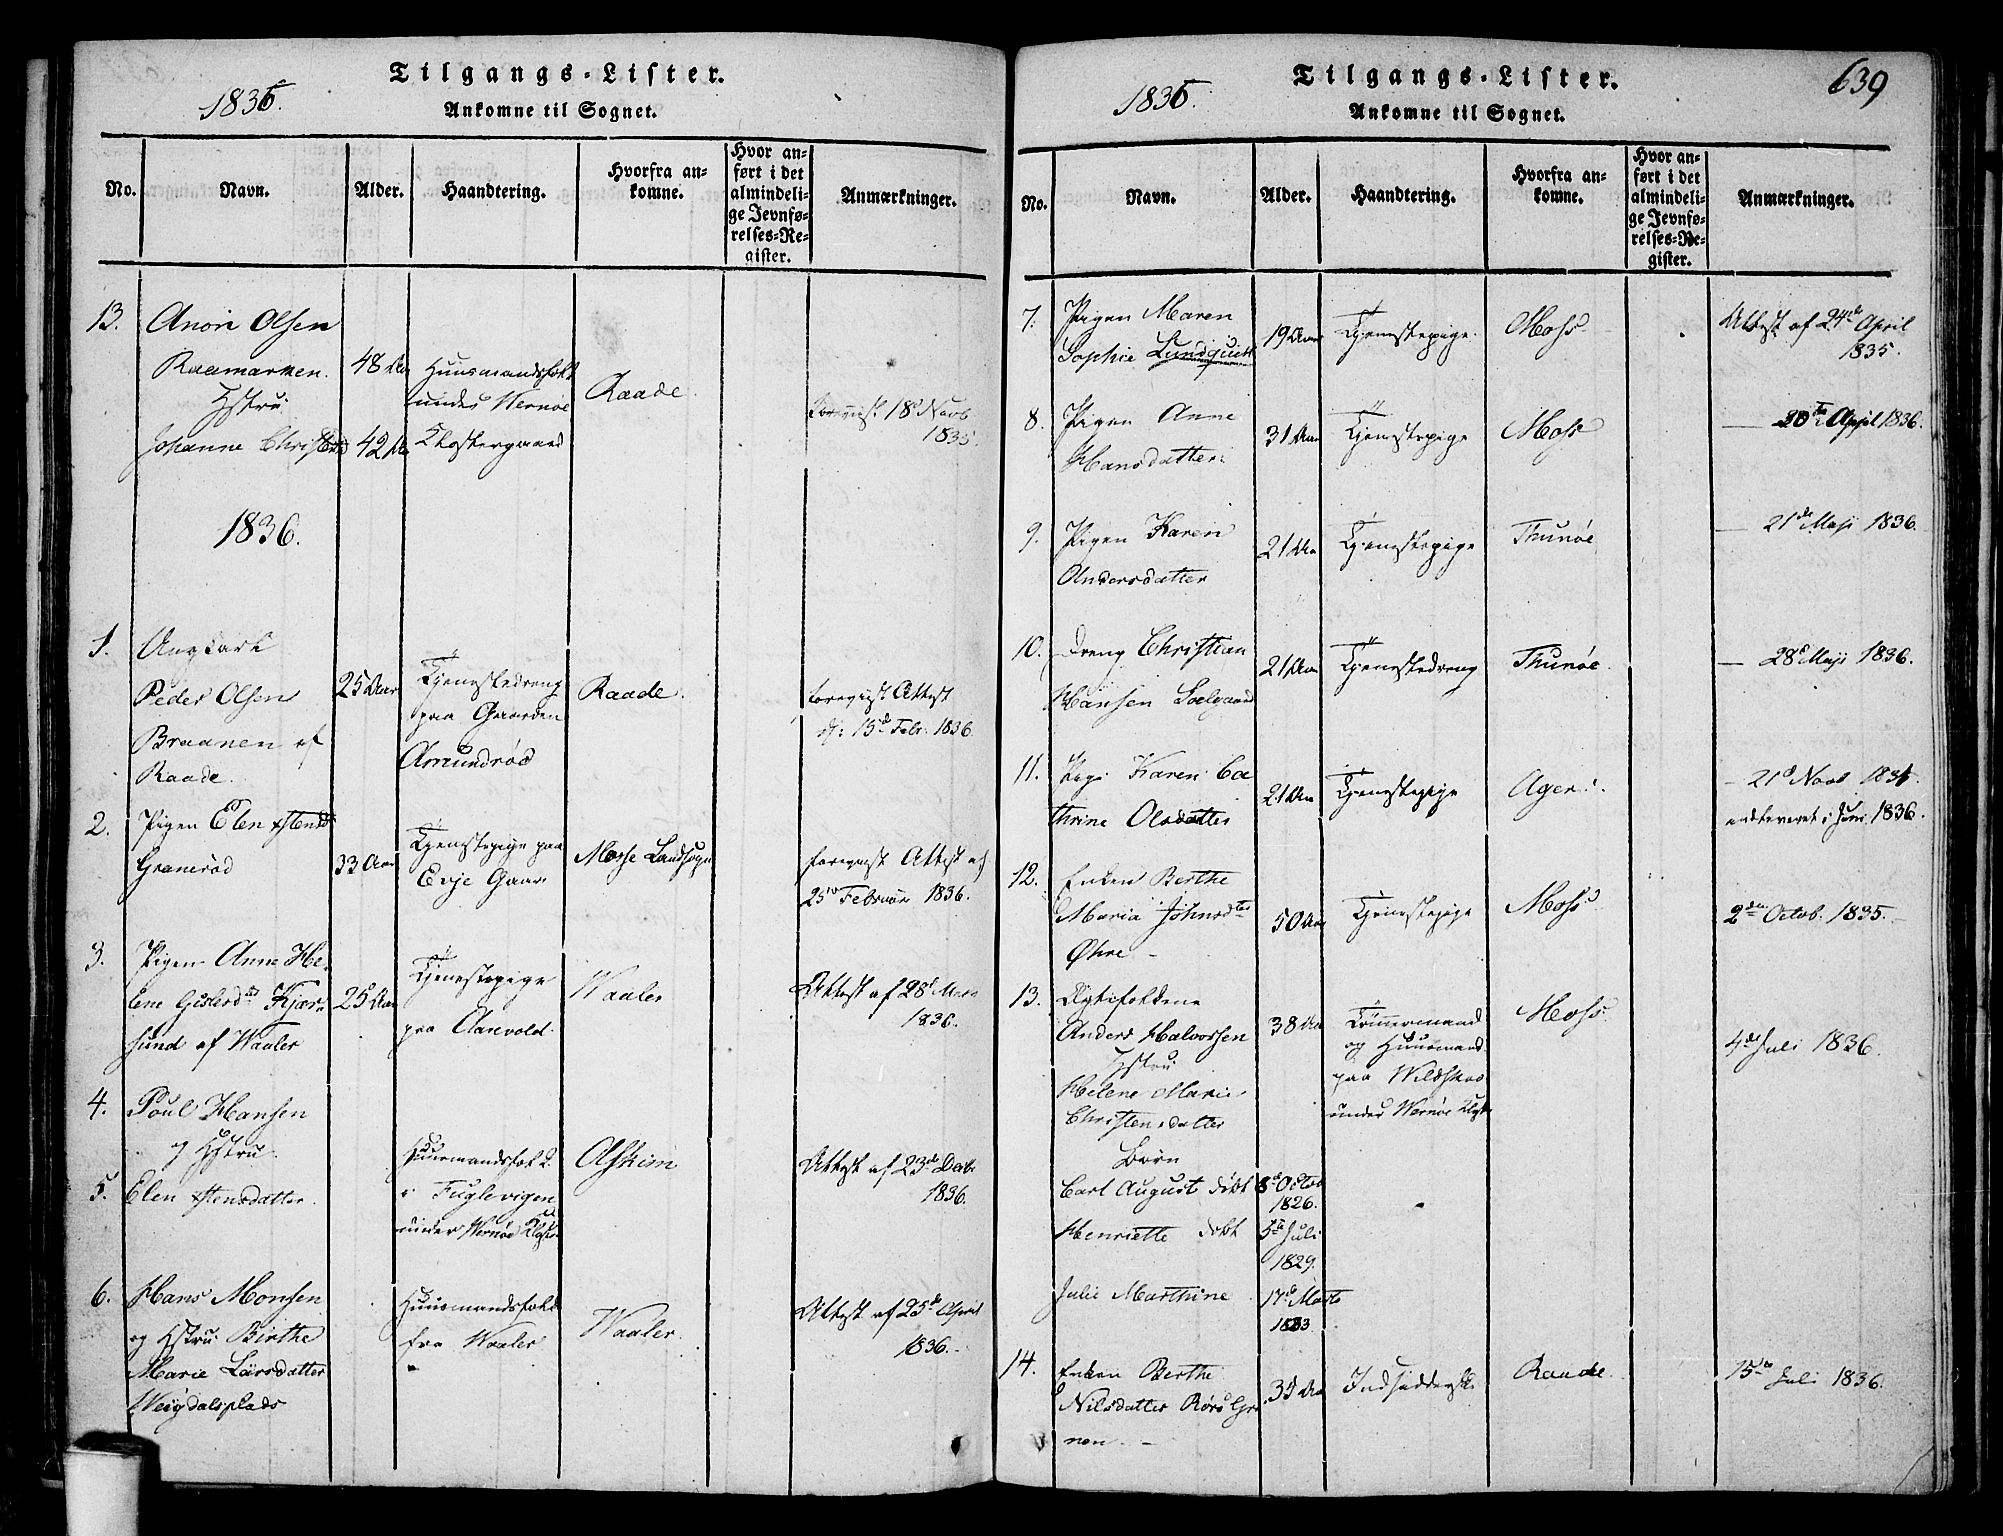 Tilgangs-Lister.
1836.
Ankomne til Sognet.
No.
Navn.
Alder.
Haandtering.
Hvorfra an-
komne.
Hvor an-
ført i det
almindeli-
ge Jevnfø-
relses-Re-
gister.
Anmærkninger.
13.
Olsen
Raamarken
Hstru
Johanne
48 Aar
42 Aar
Huusmandsfolk
under Wernøe
Klostergaard
Raade.
forevist 18d Novb
1835.
1836.
1.
Ungkarl
Peder Olsen
Braanen af
Raade.
25 Aar
Tjenestedreng
paa Gaarden
Amundrød
Raade.
forevist Attest
d: 15de Febr. 1836.
2.
Pigen Elen
Granerød
33 Aar
Tjenestepige paa
Evje Gaar
Mosse Landsogn
forevist Attest af
25 Februar 1836.
3.
Pigen Anne He-
lene Kjær-
sund af Waaler
25 Aar
Tjenestepige
paa Aarvold.
Waaler
Attest af 28d
1836.
4.
Poul Hansen
og Hstru
5.
Elen
Huusmandsfolk
i Fuglevigen
under Wernøe Kloster
Attest af 23de Decbr
1836.
6.
Hans Monsen
og Hstru Birthe
Marie Larsdatter
Huusmandsfolk
fra Waaler
Waaler.
Attest af 25de April
1836.
Tilgangs-Lister.
639
1836.
Ankomne til Sognet.
No.
Navn.
Alder.
Haandtering.
Hvorfra an-
komne.
Hvor an-
ført i det
almindeli-
ge Jevnfø-
relses-Re-
gister.
Anmærkninger.
7.
Pigen Maren
Sophie Lundquist
19 Aar
Tjenestepige.
Moss
Attest af 24de April
1835.
8.
Pigen Anne
Hansdatter
31 Aar
Tjenestepige
Moss
— 20de April 1836.
9.
Pigen Karen
Andersdatter
21 Aar
Tjenestepige
Thunøe
— 21de Maji 1836.
10.
Dreng Christian
Hansen
21 Aar
Tjenestedreng
Thunøe.
— 28d Maji 1836.
11.
Pige Karen Ca
thrine Olsdatter
21 Aar
Tjenestepige
Ager
— 21d Novb
indleveret i Juni 1836.
12.
Enken Berthe
Maria Johnsdter
Øhre —
50 Aar
Tjenestepige
Moss
2den Octob. 1835.
13.
Ægtefolkene
Anders Halvorsen
Hstru
Helene Marie
Christensdatter
Børn
Carl August født
Henriette født
Julie Marthine
38 Aar
8de Octob
1826.
5te Juli
1829.
17d Marts
1833
Tømmermand
og Huusmand
paa
under Wernøe Kloster
Moss
4de Juli 1836.
14.
Enken Berthe
Nilsdatter
35 Aar
Indsidderske
Raade
15de Juli 1836.